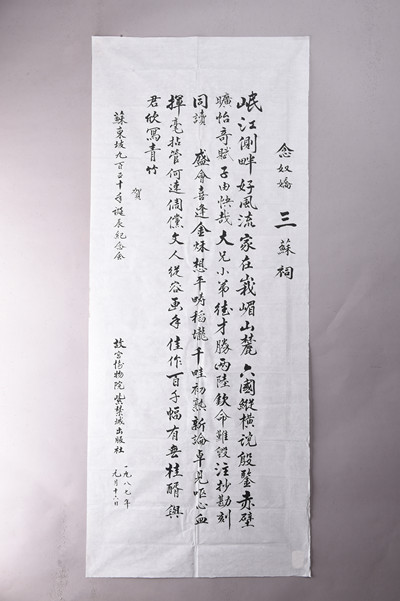 念奴嬌 三蘇祠
岷江側畔好風流家在峩嵋山麓六國縱橫說殷鑒赤壁
曠怡奇賦子由快哉大兄小弟徒才勝兩陸欽命難毀注抄勘刻
同讀 盛會喜逢金秋想平疇稻壠千畦初熟新論卓見嘔心血
揮毫拈管何遠倜儻文人從容画手佳作百千幅有無桂醑與
君欣寫青竹
賀
蘇東坡九百五十年誕辰紀念会
故宮博物院紫禁城出版社
一九八七年
元月十六日